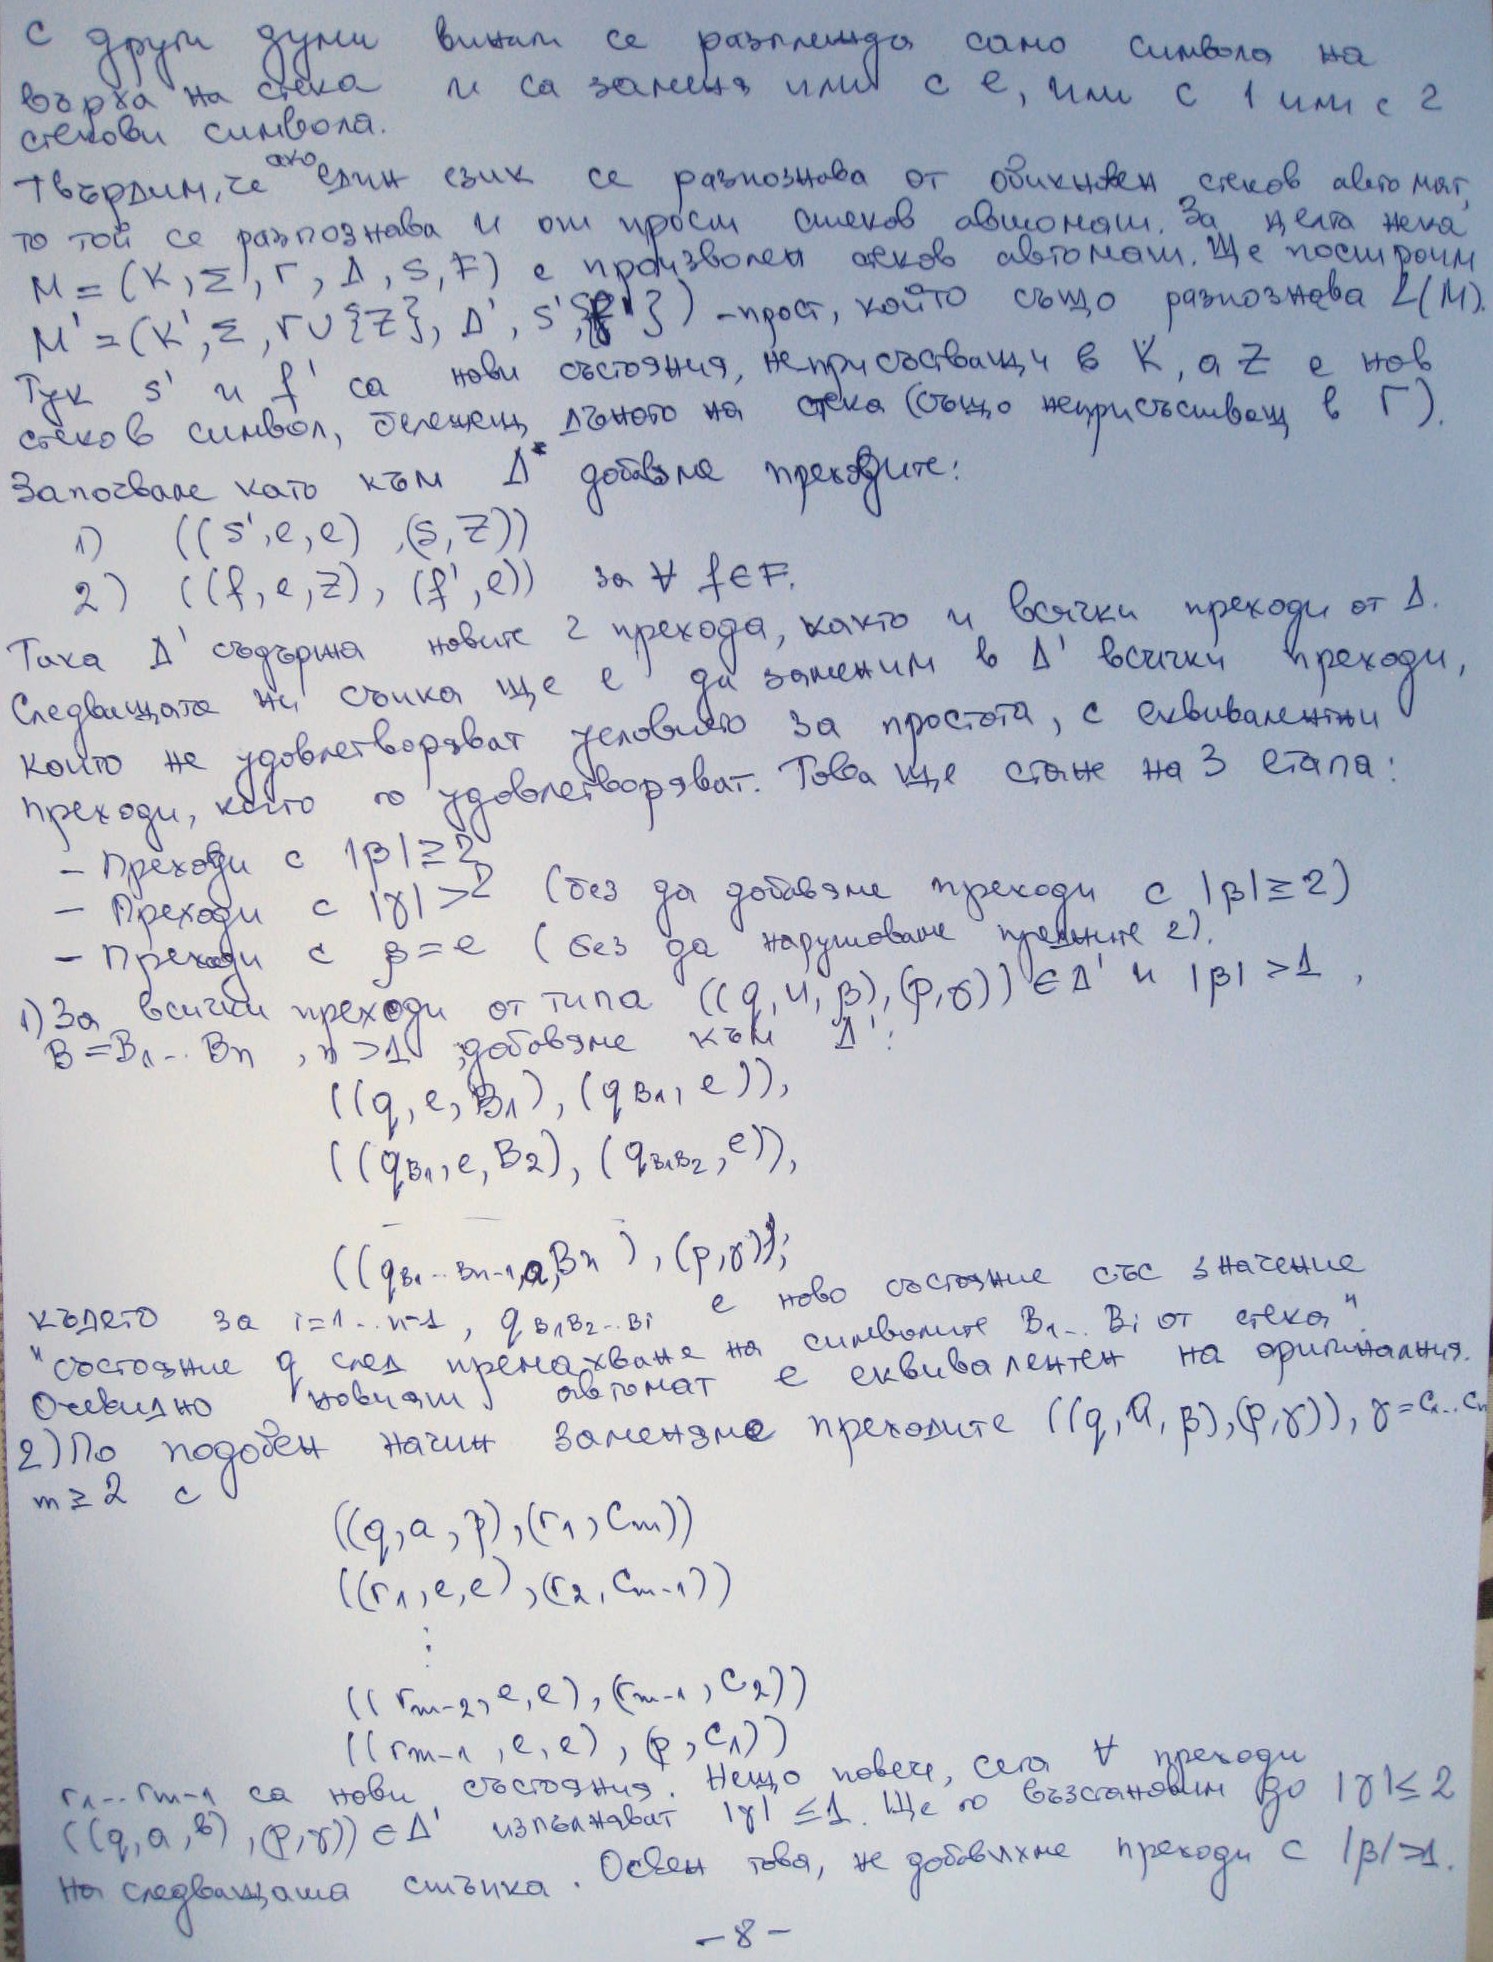 С други думи винаги се разглежда само символа на
върха на стека и са заменя или с e, или с 1 или с 2
стекови символа.
Твърдим, че ако един език се разпознава от обикновен стеков автомат,
то той се разпознава и от прост стеков автомат. За целта нека
M = (K, Σ, Γ, Δ, s, F) е произволен стеков автомат. Ще построим
M' = (K', Σ, Γ∪{Z}, Δ', s', {f'}) - прост, който също разпознава L(M).
Тук s' и f' са нови състояния, неприсъстващи в K, а Z е нов
стеков символ, бележещ дъното на стека (също неприсъстващ в Γ).
Започваме като към Δ' добавяме преходите:
1) ((s', e, e), (s, Z))
2) ((f, e, Z), (f', e)) за ∀ f∈F.
Така Δ' съдържа новите 2 прехода, както и всички преходи от Δ.
Следващата ни стъпка ще е да заменим в Δ' всички преходи,
които не удовлетворяват условието за простота, с еквивалентни
преходи, които го удовлетворяват. Това ще стане на 3 етапа:
- Преходи с |β| ≥ 2
- Преходи с |γ| > 2 (без да добавяме преходи с |β| ≥ 2)
- Преходи с β = e (без да нарушаваме предните 2).
1) За всички преходи от типа ((q, u, β), (p, γ)) ∈ Δ' и |β| > 1,
B = B1... Bn, n > 1, добавяме към Δ':
((q, e, B1), (qB1, e)),
((qB1, e, B2), (qB1B2, e)),
- - -
((qB1...Bn-1, a, Bn), (p, γ));
където за i = 1...n-1, qB1B2...Bi е ново състояние със значение
"състояние q след премахване на символите B1... Bi от стека".
Очевидно новият автомат е еквивалентен на оригиналния.
2) По подобен начин заменяме преходите ((q, a, β), (p, γ)), γ = C1...Cm
m ≥ 2 с
((q, a, β), (r1, Cm))
((r1, e, e), (r2, Cm-1))
⋮
((rm-2, e, e), (rm-1, C2))
((rm-1, e, e), (p, C1))
r1... rm-1 са нови състояния. Нещо повече, сега ∀ преходи
((q, a, β), (p, γ)) ∈ Δ' изпълняват |γ| ≤ 1. Ще го възстановим до |γ| ≤ 2
на следващата стъпка. Освен това, не добавихме преходи с |β| > 1.
- 8 -